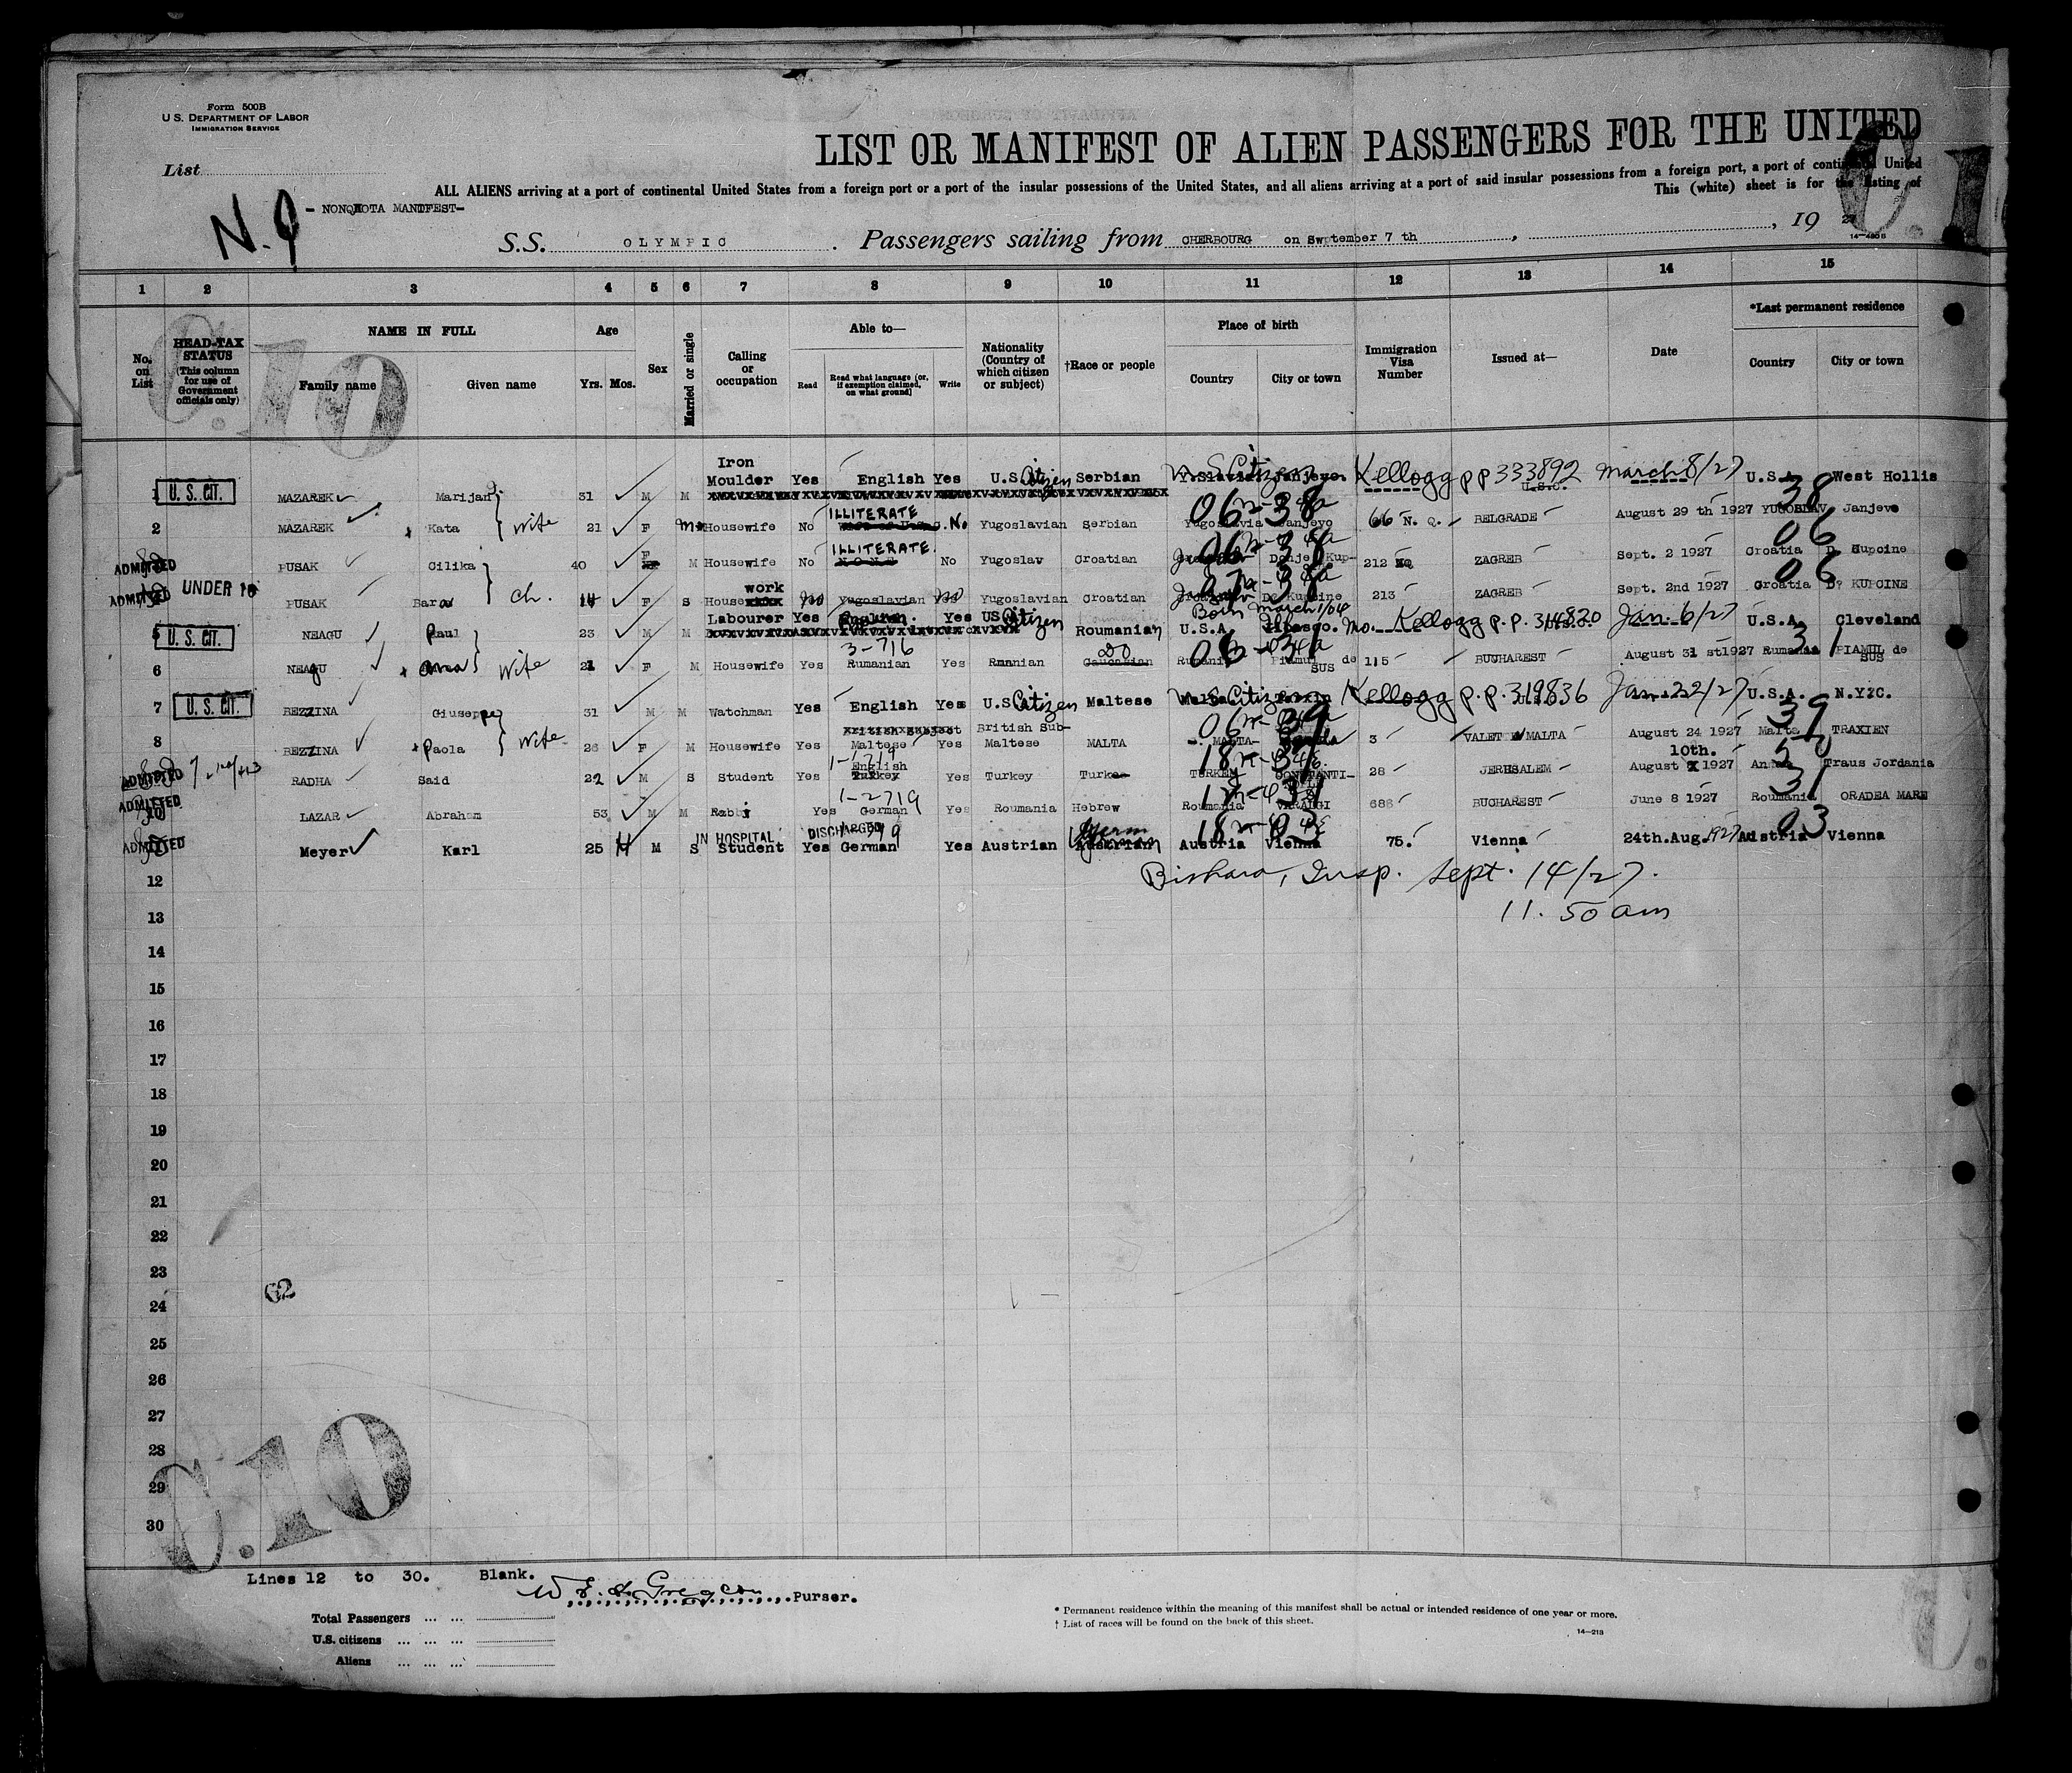 Form 500B
U.S. DEPARTMENT OF LABOR
IMMIGRATION SERVICE
LIST OR MANIFEST OF ALIEN PASSENGERS FOR THE UNITED
List
ALL ALIENS arriving at a port of continental United States from a foreign port or a port of the insular possessions of the United States, and all aliens arriving at a port of said insular possessions from a foreign port, a port of continental United
This (white) sheet is for the listing of
- NONQUOTA MANIFEST-
N.Q
S.S. OLYMPIC . Passengers sailing from CHERBOURG on Sweptember 7 th , , 19 27
14-4856
1 2 3 4 5 6 7 8 9 10 11 12 13 14 15
No. on List
HEAD-TAX STATUS (This column for use of Government officials only)
NAME IN FULL
Family name Given name
Age
Yrs. Mos.
Sex
Married or single
Calling or occupation
Able to—
Read Read what language (or, if exemption claimed, on what ground) Write
Nationality (Country of which citizen or subject)
†Race or people
Place of birth
Country City or town
Immigration Visa Number
Issued at—
Date
*Last permanent residence
Country City or town
C.10
1 U. S. CIT. MAZAREK Marijan 31 M M Iron Moulder Yes English Yes U.S. Citizen Serbian Y.Slavia Janjevo. U.S. Citizen Kellogg pp 333892 March 8/27 U.S.A. West Hollis
2 MAZAREK Kata wife 21 F M Housewife No ILLITERATE No Yugoslavian Serbian Yugoslavia Janjevo 66 N. Q. BELGRADE August 29 th 1927 YUGOSLAV Janjevo 38
ADMITTED PUSAK Cilika 40 F M Housewife No ILLITERATE. No Yugoslav Croatian Donje Kup- 212 NQ ZAGREB Sept. 2 1927 Croatia D. Kupcine 06
ADMITTED UNDER 16 PUSAK Bara ch. 14 F S House work No Yugoslavian No Yugoslavian Croatian D. Kupcine 213 ZAGREB Sept. 2nd 1927 Croatia D. KUPCINE 06
5 U. S. CIT. NEAGU Paul 23 M M Labourer Yes English. Yes US Citizen Roumanian U.S.A. Born March 1/04 Mo. Kellogg p.p. 314820 Jan. 6/27 U.S.A. Cleveland
6 NEAGU Ana wife 21 F M Housewife Yes 3-716 Rumanian Yes Rmanian Caucasian 115 BUCHAREST August 31 st1927 Rumania PIAMUL de SUS 31
7 U. S. CIT. BEZZINA Giuseppe 31 M M Watchman Yes English Yes U.S. Citizen Maltese U.S. Citizen Kellogg p.p. 319836 Jan. 22/27 U.S.A. N.Y.C.
8 BEZZINA Paola wife 26 F M Housewife Yes Maltese Yes British Sub- Maltese MALTA MALTA 3 VALETTA MALTA August 24 1927 Malta TRAXIEN 39
ADMITTED RADHA Said 22 M S Student Yes 1-1719 English Turkey Yes Turkey Turkey TURKEY CONSTANTI- 28 JERUSALEM 10th. August 1927 Traus Jordania
ADMITTED 10 LAZAR Abraham 53 M M Rabbi Yes 1-2719 German Yes Roumania Hebrew Roumania 686 BUCHAREST June 8 1927 Roumania ORADEA MARE 31
ADMITTED Meyer Karl 25 M S IN HOSPITAL DISCHARGED Student Yes German Yes Austrian German Austria Vienna 75. Vienna 24th.Aug. 1927 Austria Vienna 03
12 Bishara, Insp. Sept. 14/27.
13 11. 50 am
14
15
16
17
18
19
20
21
22
23
62
24
25
26
27
28
29
30
C.10
Lines 12 to 30. Blank.
Purser.
Total Passengers ... ...
U.S. citizens ... ... ...
Aliens ... ... ...
* Permanent residence within the meaning of this manifest shall be actual or intended residence of one year or more.
† List of races will be found on the back of this sheet.
14—213